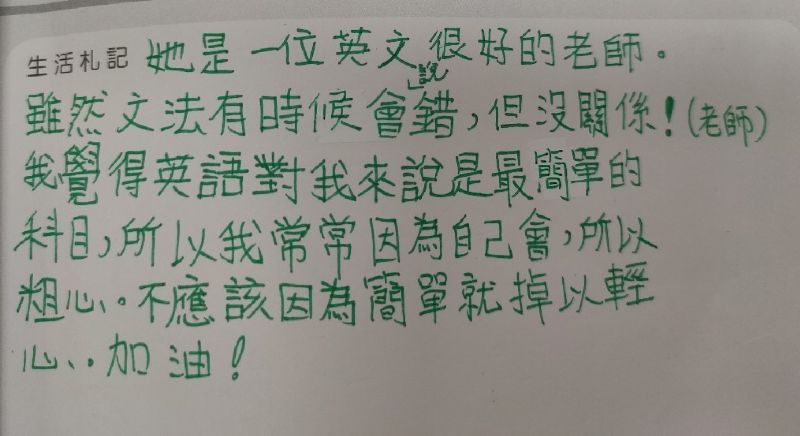 生活札記 她是一位英文很好的老師。
雖然文法有時候會說錯,但沒關係!(老師)
我覺得英語對我來說是最簡單的
科目,所以我常常因為自己會,所以
粗心。不應該因為簡單就掉以輕
心。加油!